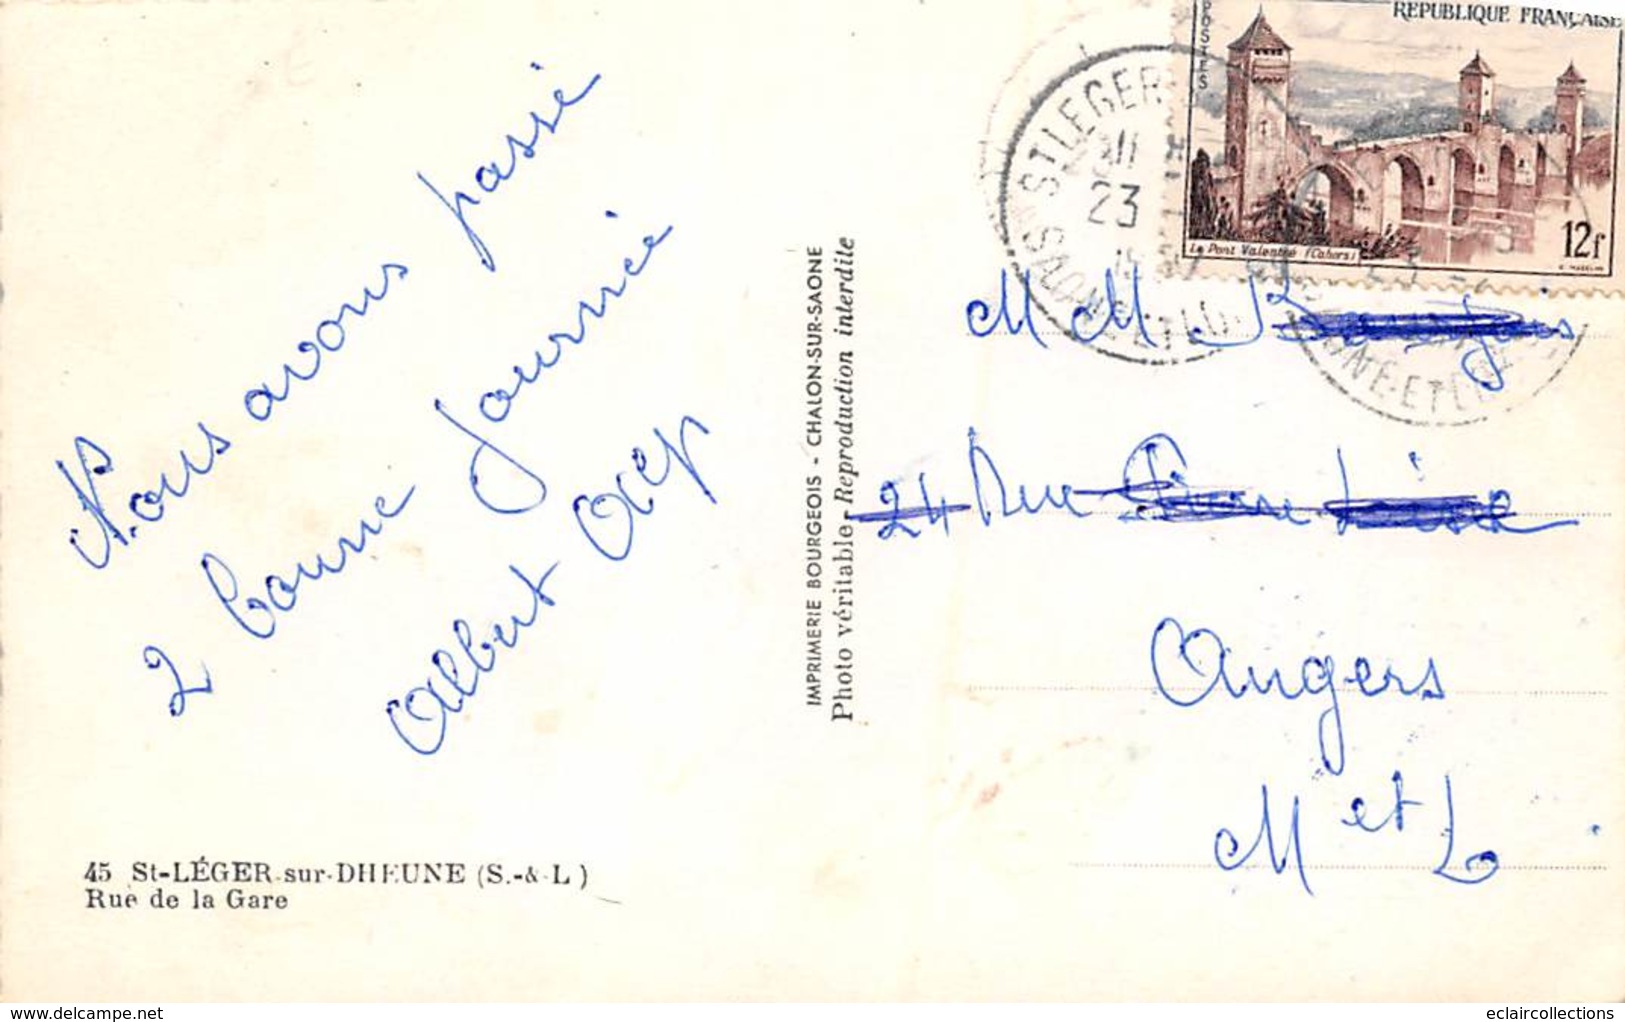 Nous avons passé
2 bonne journée
Albert
45 St-LÉGER-sur-DHEUNE (S.-& L)
Rue de la Gare
IMPRIMERIE BOURGEOIS - CHALON-SUR-SAONE
Photo véritable - Reproduction interdite
POSTES
REPUBLIQUE FRANÇAISE
Le Pont Valentré (Cahors)
12f
ST LEGER
23
SAONE ET LOIRE
M M
24 Rue
Angers
M et L
eclaircollections